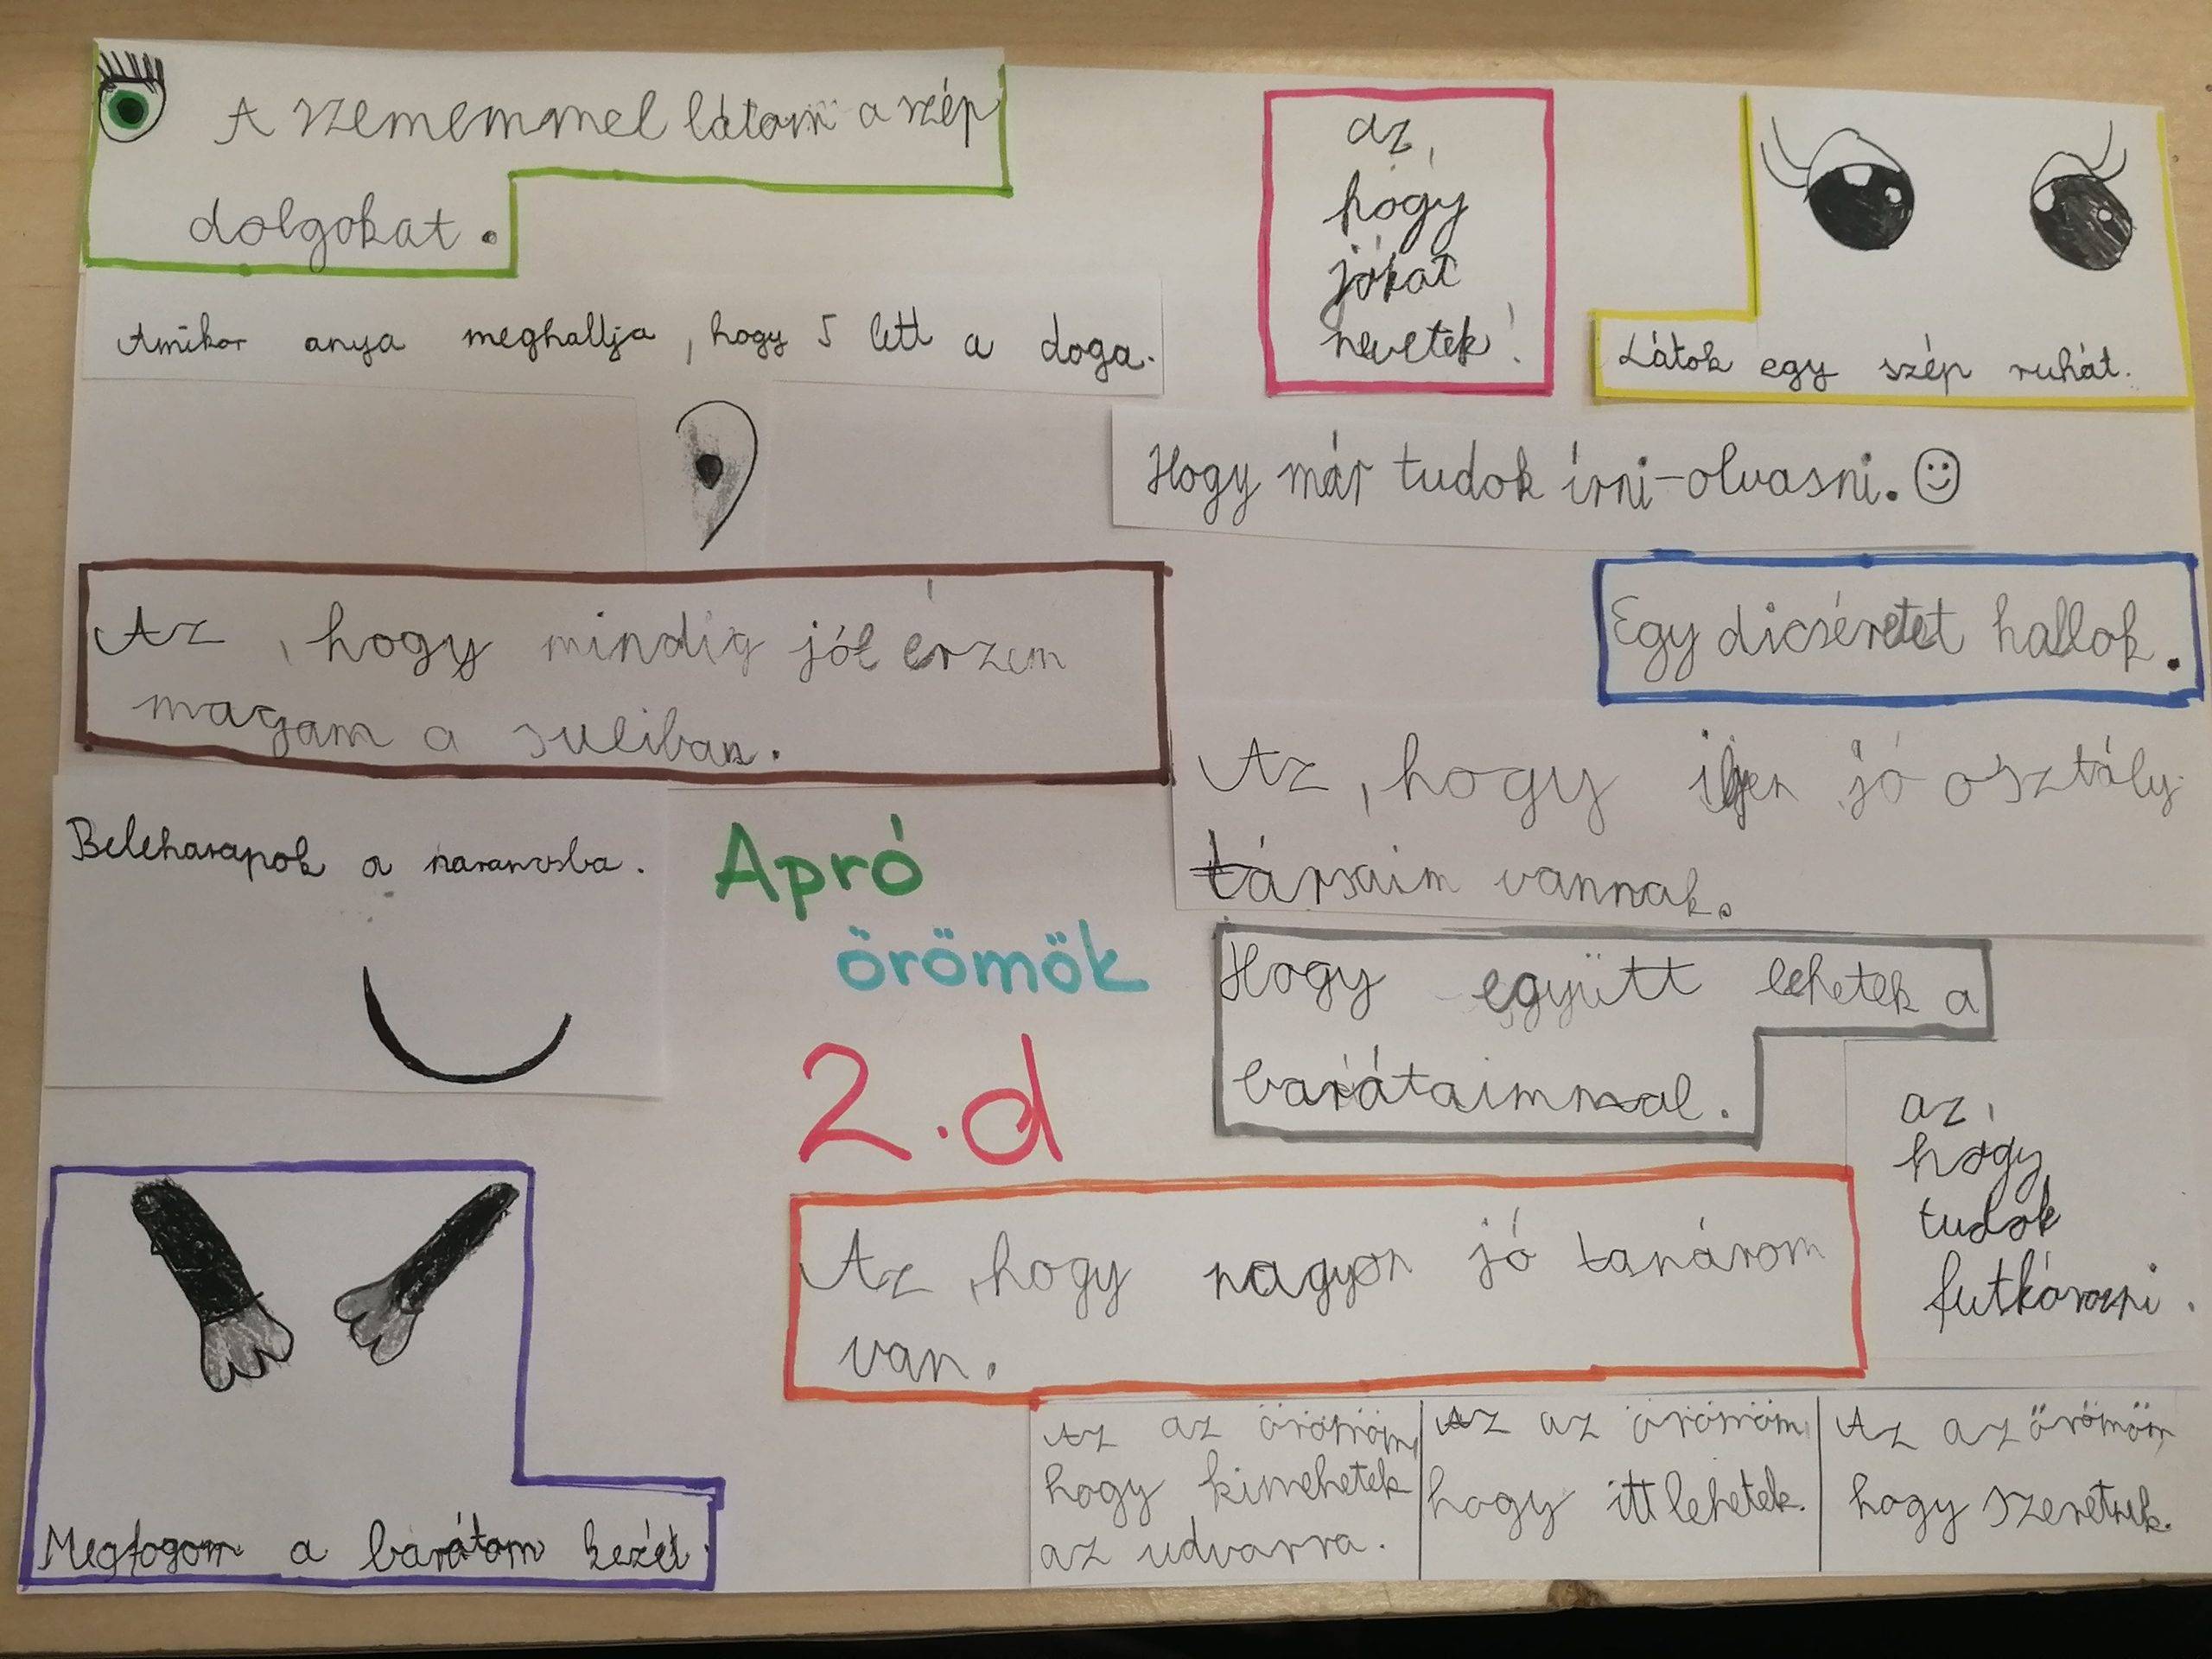 A szememmel látom a szép
dolgokat.
Amikor anya meghallja, hogy 5 lett a doga.
az,
hogy
jókat
nevetek!
Látok egy szép ruhát.
Hogy már tudok írni-olvasni.
Az, hogy mindig jól érzem
magam a suliban.
Egy dicséretet hallok.
Az, hogy ilyen jó osztály
társaim vannak.
Beleharapok a narancsba.
Apró
örömök
2.d
Hogy együtt lehetek a
barátaimmal.
az,
hogy
tudok
futkározni.
Az, hogy nagyon jó tanárom
van.
Megfogom a barátom kezét.
Az az örömöm,
hogy kimehetek
az udvarra.
Az az örömöm,
hogy itt lehetek.
Az az örömöm
hogy szeretnek.